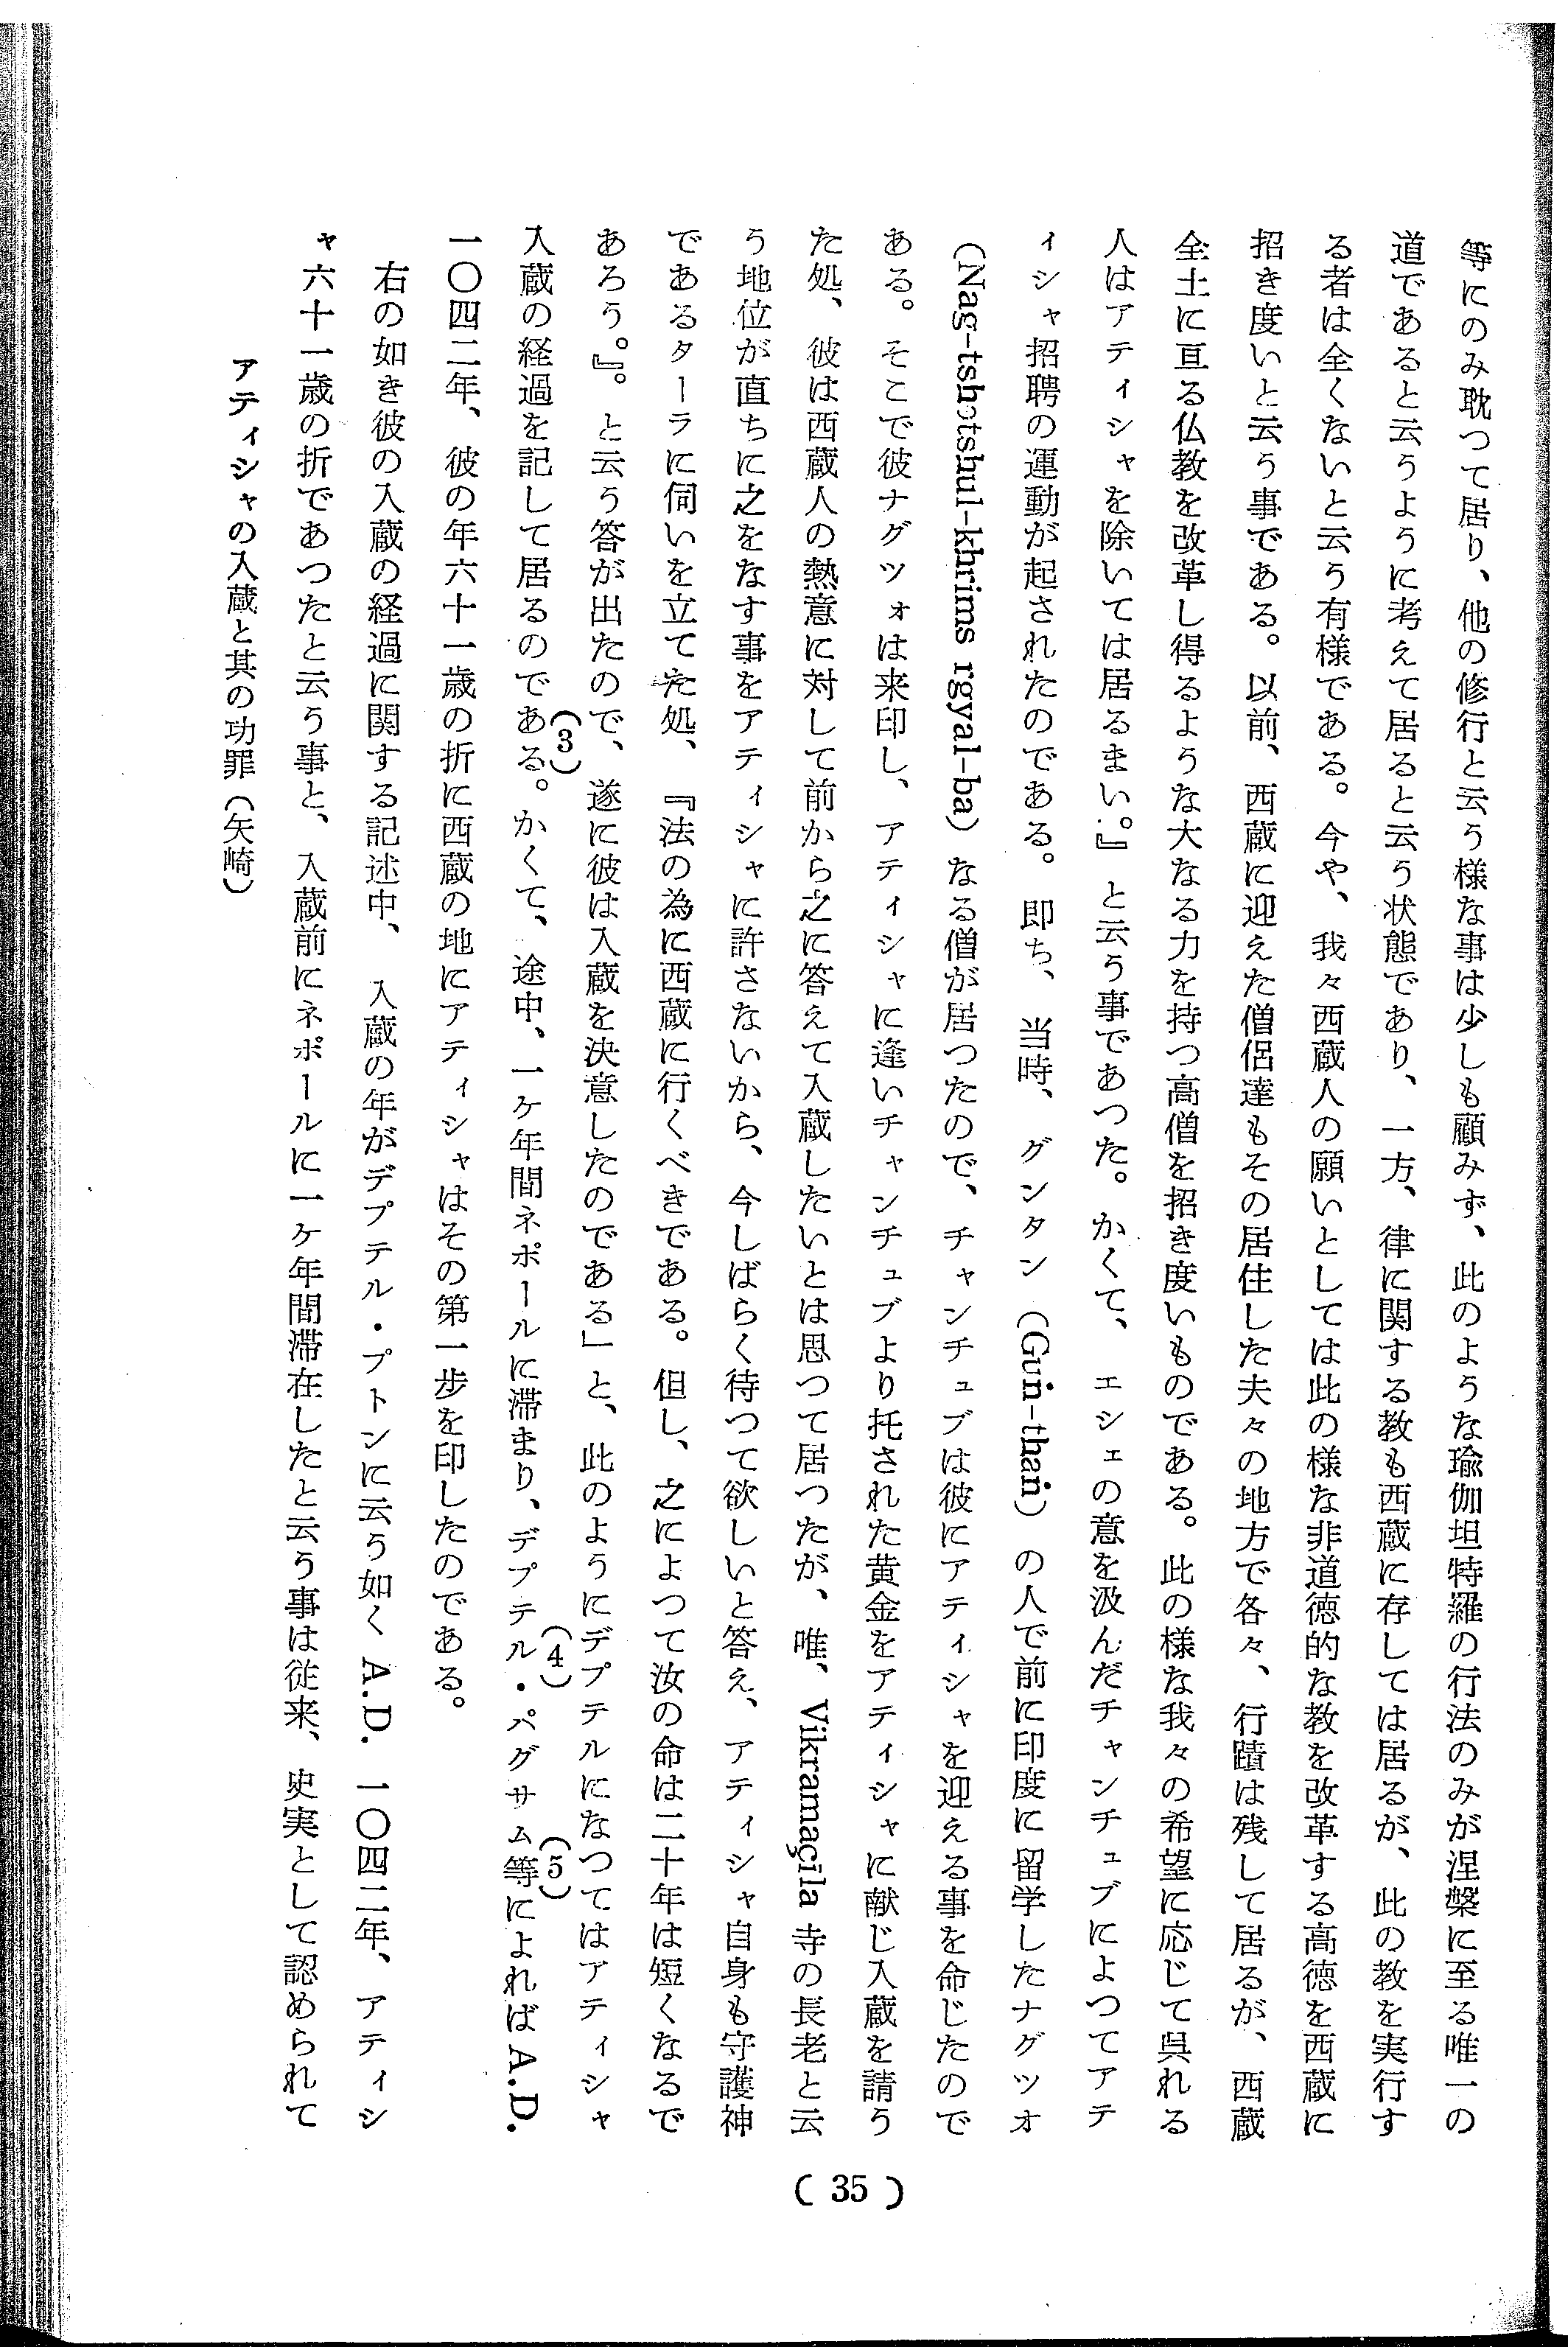 等にのみ耽つて居り、他の修行と云う様な事は少しも顧みず、此のような瑜伽坦特羅の行法のみが涅槃に至る唯一の
道であると云うように考えて居ると云う状態であり、一方、律に関する教も西蔵に存しては居るが、此の教を実行す
る者は全くないと云う有様である。今や、我々西蔵人の願いとしては此の様な非道徳的な教を改革する高徳を西蔵に
招き度いと云う事である。以前、西蔵に迎えた僧侶達もその居住した夫々の地方で各々、行蹟は残して居るが、西蔵
全土に亘る仏教を改革し得るような大なる力を持つ高僧を招き度いものである。此の様な我々の希望に応じて呉れる
人はアティシャを除いては居るまい。』と云う事であつた。かくて、エシェの意を汲んだチャンチュブによつてアテ
ィシャ招聘の運動が起されたのである。即ち、当時、グンタン（Guṅ-thaṅ）の人で前に印度に留学したナグツオ
（Nag-tshotshul-khrims rgyal-ba）なる僧が居つたので、チャンチュブは彼にアティシャを迎える事を命じたので
ある。そこで彼ナグツォは来印し、アティシャに逢いチャンチュブより托された黄金をアティシャに献じ入蔵を請う
た処、彼は西蔵人の熱意に対して前から之に答えて入蔵したいとは思つて居つたが、唯、Vikramaçīla 寺の長老と云
う地位が直ちに之をなす事をアティシャに許さないから、今しばらく待つて欲しいと答え、アティシャ自身も守護神
であるターラに伺いを立てた処、『法の為に西蔵に行くべきである。但し、之によつて汝の命は二十年は短くなるで
あろう。』。と云う答が出たので、遂に彼は入蔵を決意したのである」と、此のようにデプテルになつてはアティシャ
入蔵の経過を記して居るのである。(3)かくて、途中、一ケ年間ネポールに滞まり、デプテル(4)・パグサム(5)等によれば A.D.
一〇四二年、彼の年六十一歳の折に西蔵の地にアティシャはその第一歩を印したのである。
右の如き彼の入蔵の経過に関する記述中、入蔵の年がデプテル・プトンに云う如く A.D. 一〇四二年、アティシ
ャ六十一歳の折であつたと云う事と、入蔵前にネポールに一ケ年間滞在したと云う事は従来、史実として認められて
アティシャの入蔵と其の功罪（矢崎）
( 35 )